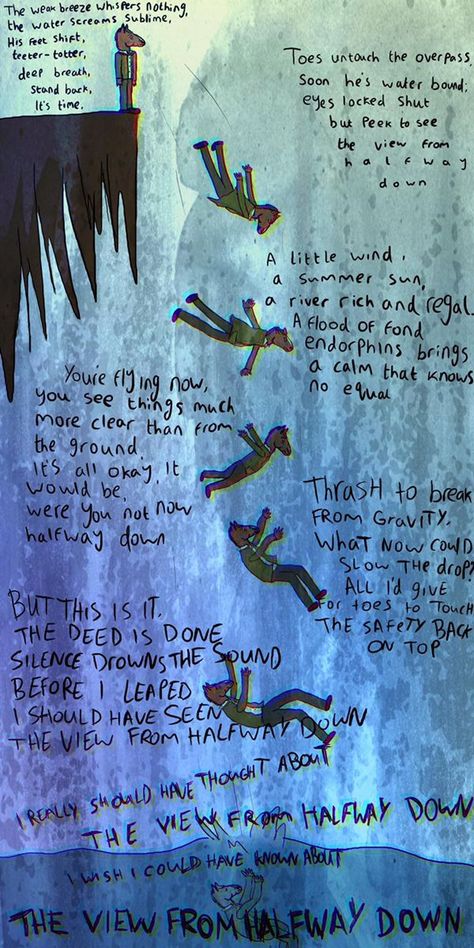 The weak breeze whispers nothing,
the water screams sublime,
His feet shift,
teeter-totter,
deep breath,
Stand back,
It's time.
Toes untouch the overpass,
Soon he's water bound;
eyes locked shut
but peek to see
the view from
halfway
down
A little wind,
a summer sun,
a river rich and regal.
A flood of fond
endorphins brings
a calm that knows
no equal
Youre flying now,
you see things much
more clear than from
the ground.
It's all okay, it
would be,
were you not now
halfway down.
Thrash to break
from gravity.
What now could
slow the drop?
All I'd give
for toes to touch
the safety back
on top
BUT THIS IS IT.
THE DEED IS DONE
SILENCE DROWNS THE SOUND
BEFORE I LEAPED
I SHOULD HAVE SEEN
THE VIEW FROM HALFWAY DOWN
I REALLY SHOULD HAVE THOUGHT ABOUT
THE VIEW FROM HALFWAY DOWN
I WISH I COULD HAVE KNOWN ABOUT
THE VIEW FROM HALFWAY DOWN